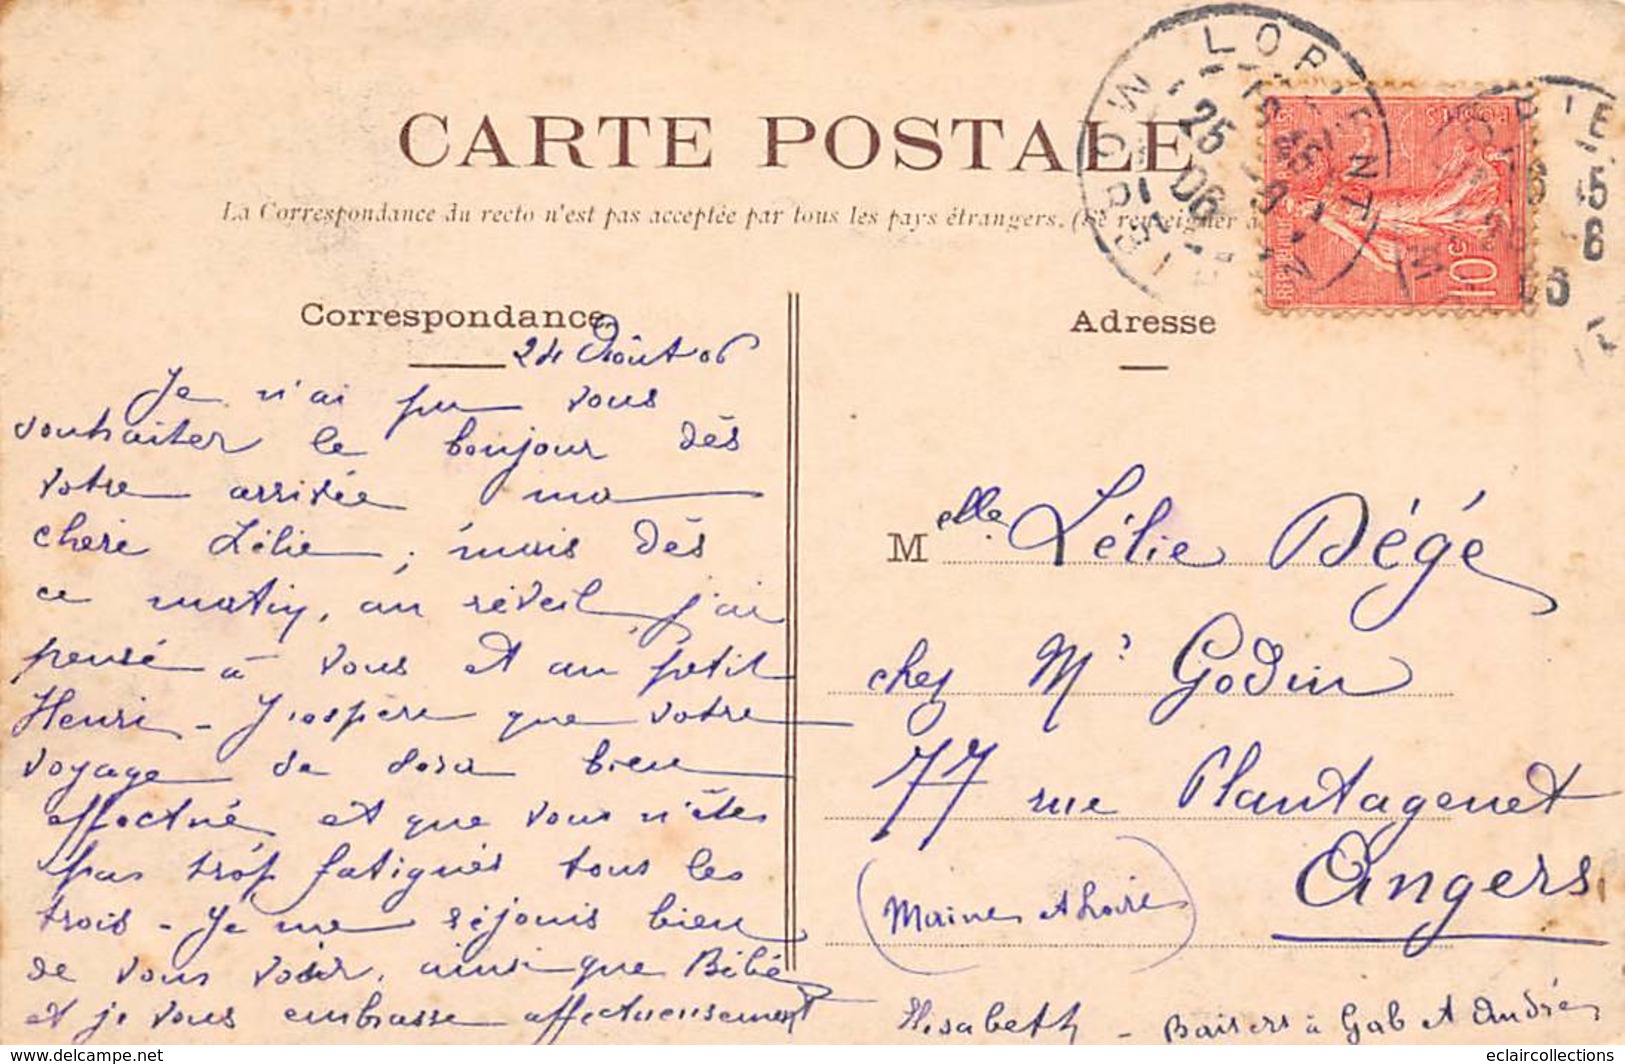 CARTE POSTALE
La Correspondance du recto n'est pas acceptée par tous les pays étrangers. (Se renseigner à
Correspondance
24 Août 06
Je n'ai pu vous
souhaiter le bonjour dès
votre arrivée ma
chère Lélie, mais dès
ce matin, au réveil, j'ai
pensé à vous et au petit
Henri - J'espère que votre
voyage se sera bien
effectué et que vous n'êtes
pas trop fatigués tous les
trois - Je me réjouis bien
de vous voir, ainsi que Bébé
et je vous embrasse affectueusement
Adresse
Melle Lélie Dégé
chez Mr Godin
77 rue Plantagenet
Angers
(Maine et Loire)
Elisabeth - Baisers à Gab et André
LORIENT
MORBIHAN
25
06
10c
eclaircollections